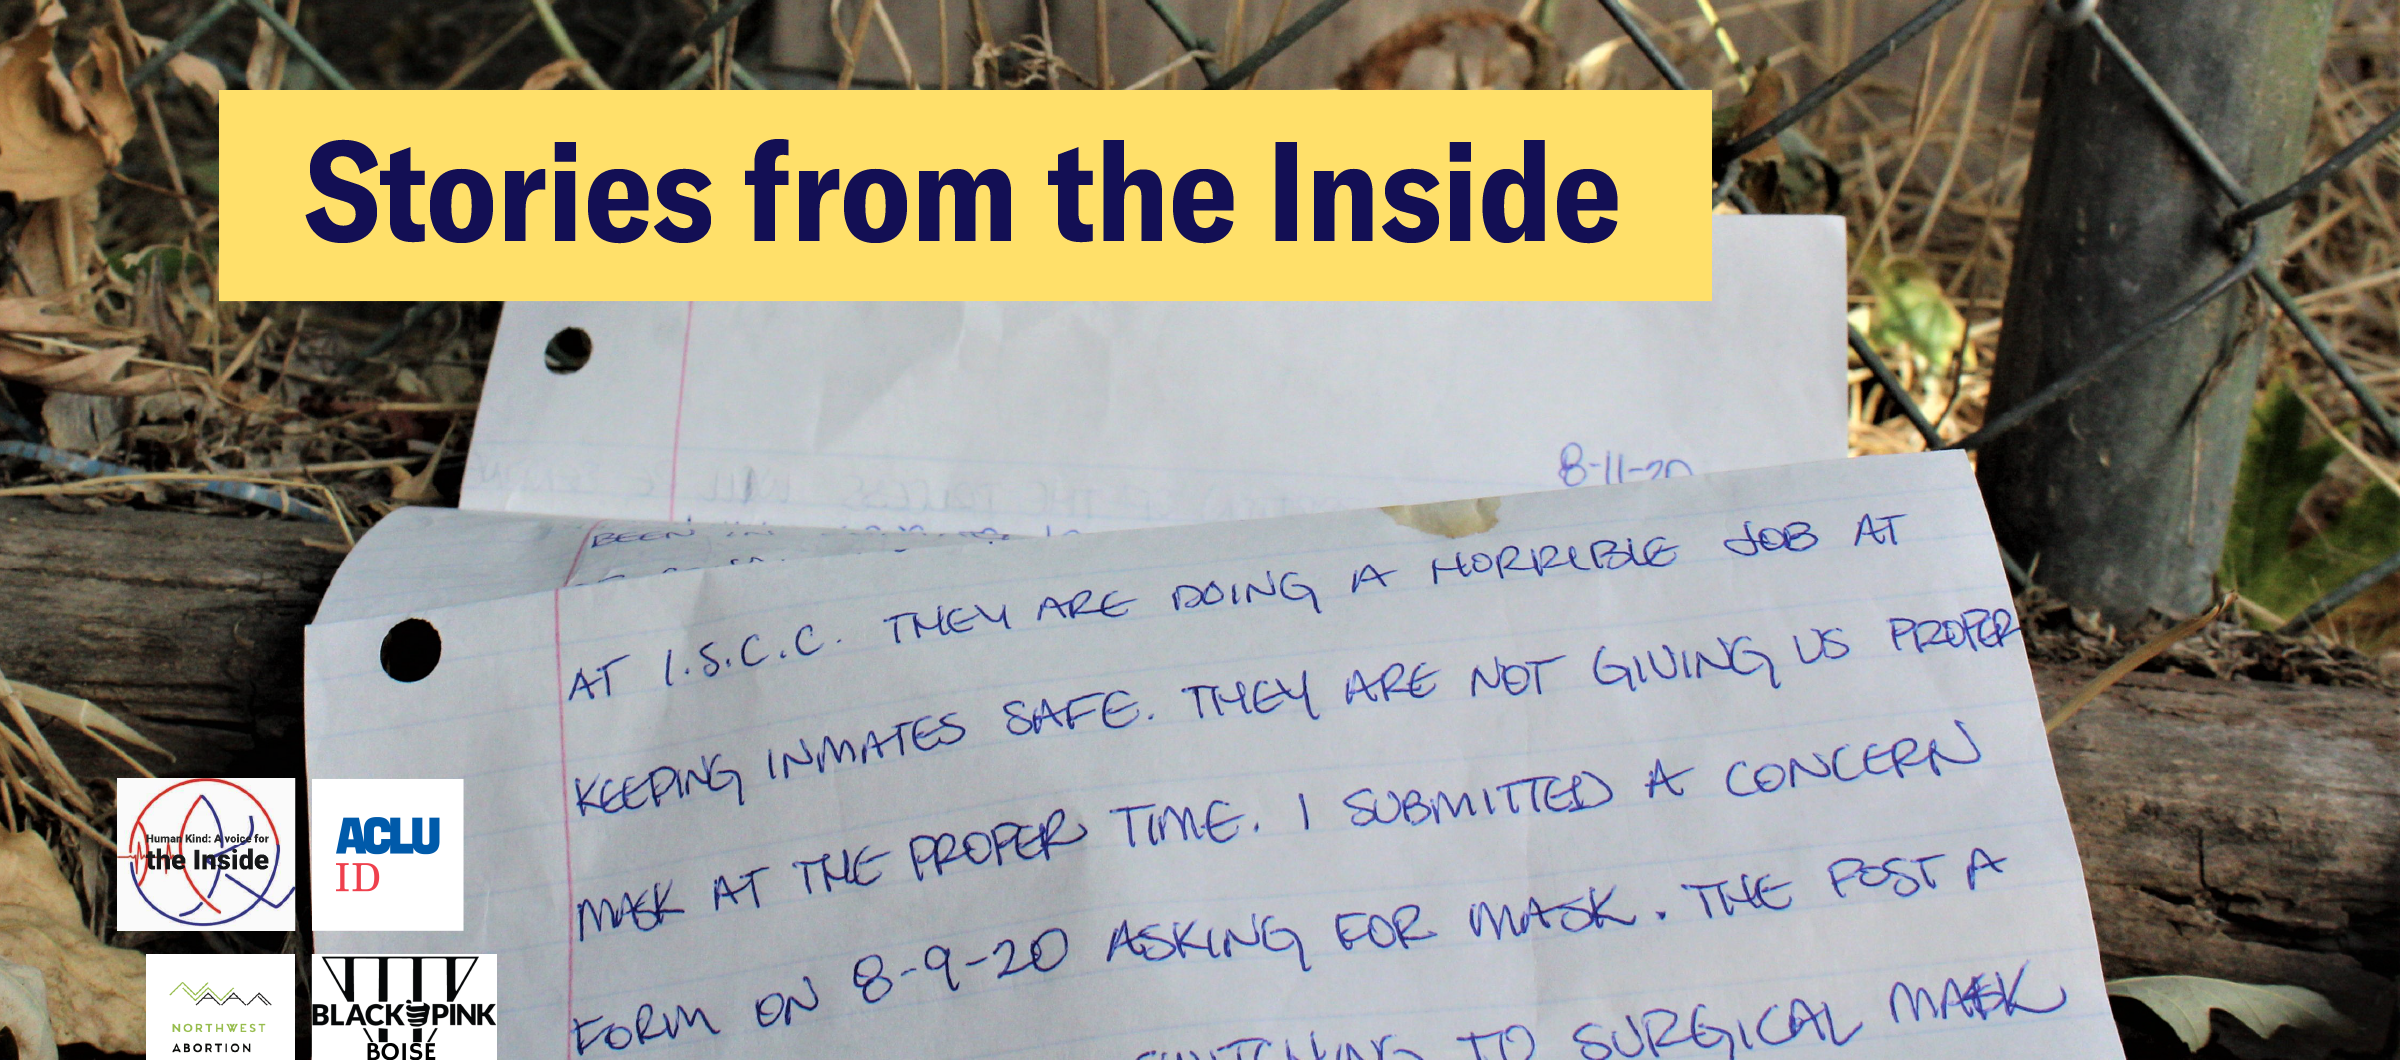 Stories from the Inside
8-11-20
BEEN IN
AT I.S.C.C. THEY ARE DOING A HORRIBLE JOB AT
KEEPING INMATES SAFE. THEY ARE NOT GIVING US PROPER
MASK AT THE PROPER TIME. I SUBMITTED A CONCERN
FORM ON 8-9-20 ASKING FOR MASK. THE POST A
SWITCHING TO SURGICAL MASK
Human Kind: A voice for
the Inside
ACLU
ID
NORTHWEST
ABORTION
BLACK PINK
BOISE